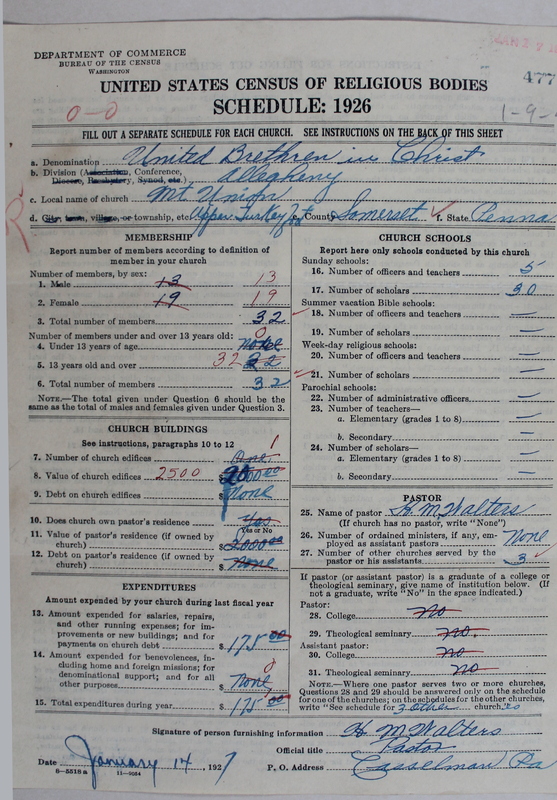 DEPARTMENT OF COMMERCE
BUREAU OF THE CENSUS
WASHINGTON
477
UNITED STATES CENSUS OF RELIGIOUS BODIES
SCHEDULE: 1926
0-0
1-9-
FILL OUT A SEPARATE SCHEDULE FOR EACH CHURCH. SEE INSTRUCTIONS ON THE BACK OF THIS SHEET
a. Denomination United Brethren in Christ
b. Division (Association, Conference, Diocese, Presbytery, Synod, etc.) Allegheny
c. Local name of church Mt Union
d. City, town, village, or township, etc. Upper Turkey e. County Somerset f. State Penna
MEMBERSHIP
Report number of members according to definition of member in your church
Number of members, by sex:
1. Male 13 13
2. Female 19 19
3. Total number of members 32
Number of members under and over 13 years old:
4. Under 13 years of age None 0
5. 13 years old and over 32
6. Total number of members 32
NOTE.—The total given under Question 6 should be the same as the total of males and females given under Question 3.
CHURCH BUILDINGS
See instructions, paragraphs 10 to 12
7. Number of church edifices One 1
8. Value of church edifices 2500 $
9. Debt on church edifices $ None
10. Does church own pastor's residence Yes
Yes or No
11. Value of pastor's residence (if owned by church) $
12. Debt on pastor's residence (if owned by church) $ None
EXPENDITURES
Amount expended by your church during last fiscal year
13. Amount expended for salaries, repairs, and other running expenses; for improvements or new buildings; and for payments on church debt $ 175 00
14. Amount expended for benevolences, including home and foreign missions; for denominational support; and for all other purposes $ None 0
15. Total expenditures during year $ 175 00
CHURCH SCHOOLS
Report here only schools conducted by this church
Sunday schools:
16. Number of officers and teachers 5
17. Number of scholars 30
Summer vacation Bible schools:
18. Number of officers and teachers —
19. Number of scholars —
Week-day religious schools:
20. Number of officers and teachers —
21. Number of scholars —
Parochial schools:
22. Number of administrative officers —
23. Number of teachers—
a. Elementary (grades 1 to 8) —
b. Secondary —
24. Number of scholars—
a. Elementary (grades 1 to 8) —
b. Secondary —
PASTOR
25. Name of pastor H. M. Walters
(If church has no pastor, write "None")
26. Number of ordained ministers, if any, employed as assistant pastors None
27. Number of other churches served by the pastor or his assistants 3
If pastor (or assistant pastor) is a graduate of a college or theological seminary, give name of institution below. (If not a graduate, write "No" in the space indicated.)
Pastor:
28. College No
29. Theological seminary No.
Assistant pastor:
30. College No
31. Theological seminary No
NOTE.—Where one pastor serves two or more churches, Questions 28 and 29 should be answered only on the schedule for one of the churches; on the schedules for the other churches, write "See schedule for 3 other church."
Signature of person furnishing information H. M Walters
Official title Pastor
Date January 14, 1927
P. O. Address Casselman Pa
8-5518a
11-9084